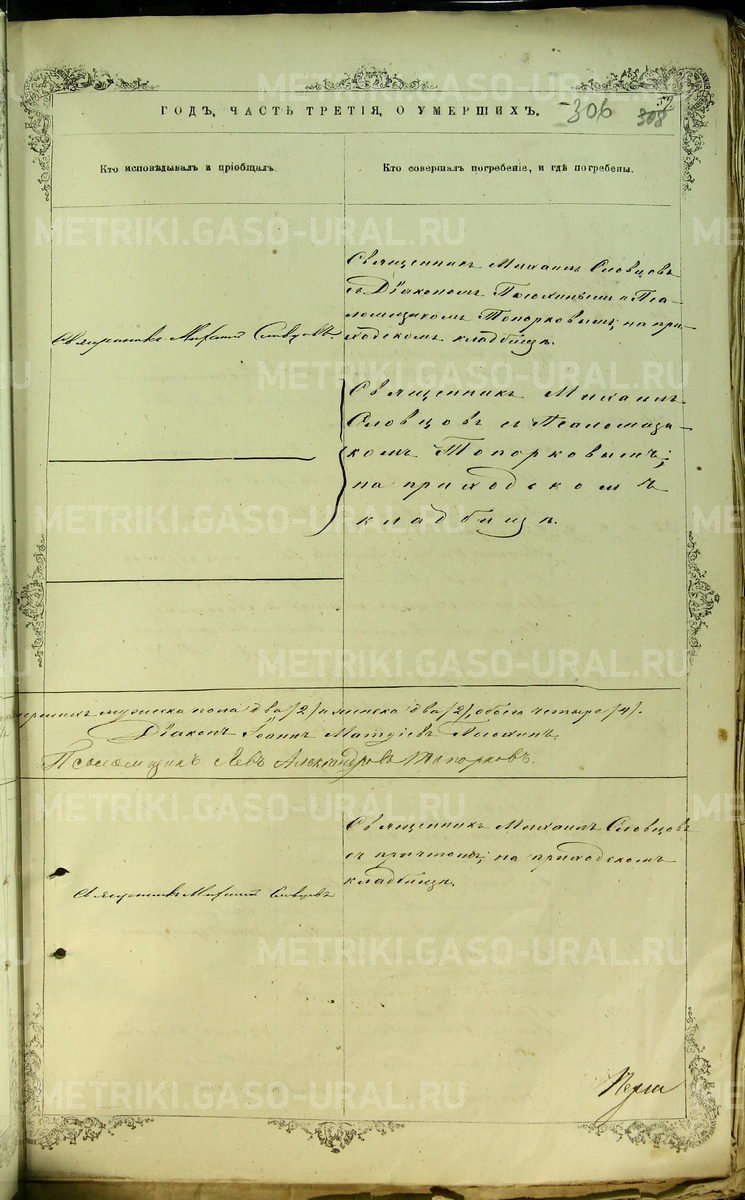 ГОДЪ, ЧАСТЬ ТРЕТІЯ, О УМЕРШИХЪ.
306
308
57
Кто исповѣдывалъ и пріобщалъ.
Кто совершалъ погребеніе, и гдѣ погребены.
Священникъ Михаилъ Словцовъ
съ Діакономъ и Пса-
ломщикомъ Топорковымъ; на при-
ходскомъ кладбищѣ.
Священникъ Михаилъ Словцовъ.
Священникъ Михаилъ
Словцовъ съ Псаломщи-
комъ Топорковымъ;
на приходскомъ
кладбищѣ.
мужеска пола два /2/ и женска два /2/, обоего четыре /4/.
Діаконъ Іоаннъ
Псаломщикъ Левъ Александровъ Топорковъ.
Священникъ Михаилъ Словцовъ
съ причтомъ; на приходскомъ
кладбищѣ.
Священникъ Михаилъ Словцовъ
METRIKI.GASO-URAL.RU